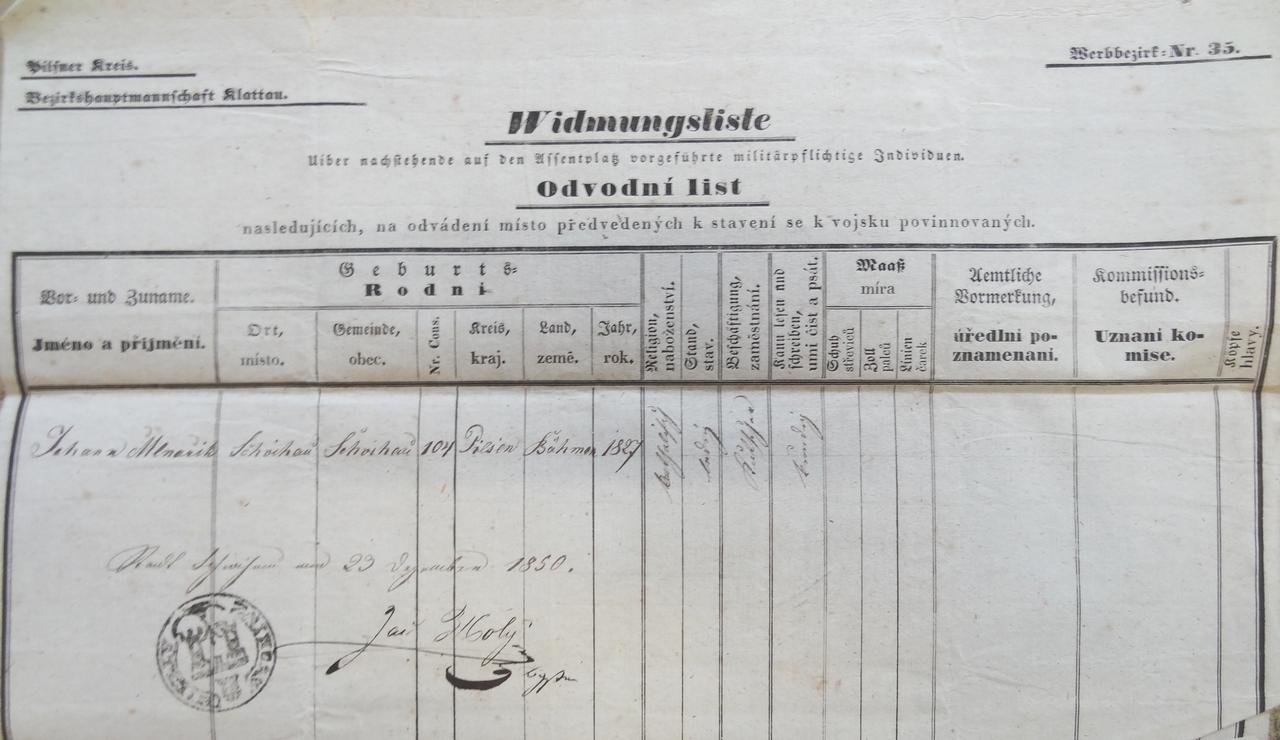 Pilsner Kreis.
Werbbezirk-Nr. 35.
Bezirkshauptmannschaft Klattau.
Widmungsliste
Uiber nachstehende auf den Assentplatz vorgeführte militärpflichtige Individuen.
Odvodní list
nasledujících, na odvádení místo předvedených k stavení se k vojsku povinnovaných.
Vor- und Zuname.
Jméno a přijmění.
Geburts-
Rodni
Ort,
místo.
Gemeinde,
obec.
Nr. Cons.
Kreis,
kraj.
Land,
země.
Jahr,
rok.
Religion,
náboženství.
Stand,
stav.
Beschäftigung,
zaměstnání.
Kann lesen und
schreiben,
umí číst a psát.
Maaß
míra
Schuh
střevíců
Zoll
palců
Linien
čárek
Aemtliche
Vormerkung,
úředlni po-
znamenani.
Kommissions-
befund.
Uznani ko-
mise.
Kopfe
hlavy.
Johann Mlnařik Schwihau Schwihau 104 Pilsen Böhmen 1827
Stadt Schwihau am 23 Dezember 1850.
Jan